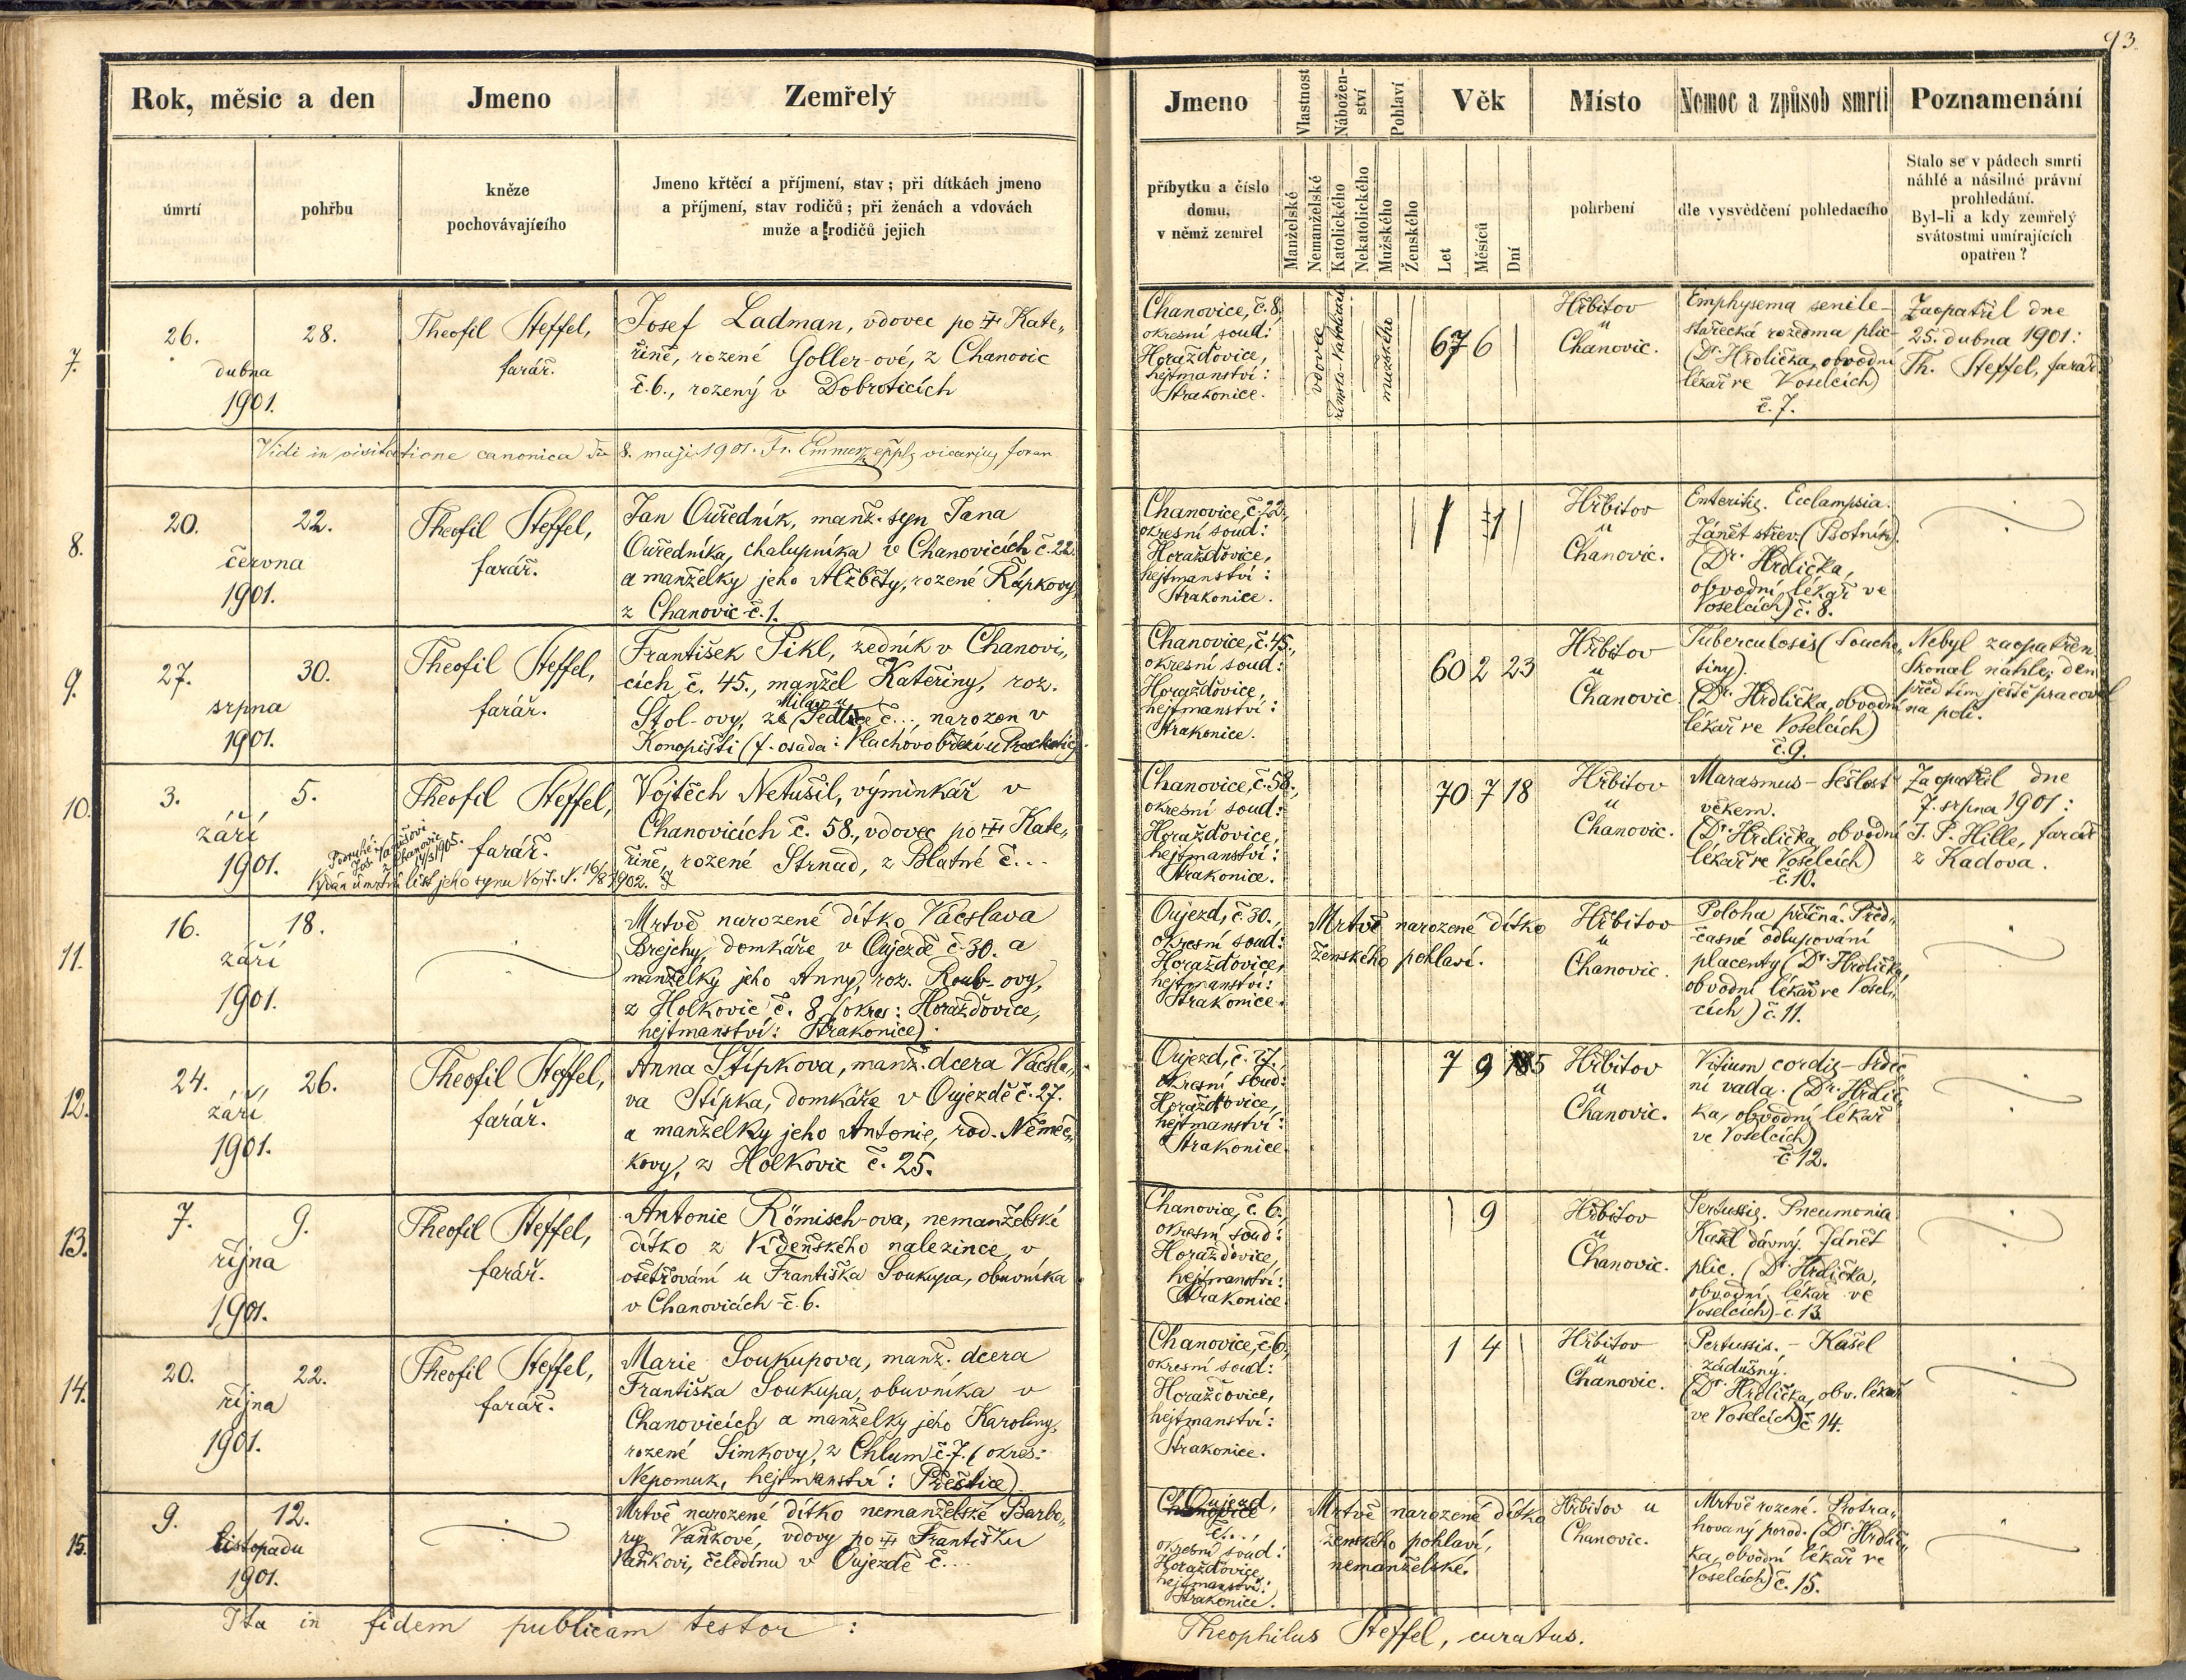 93.
Rok, měsic a den
Jmeno
Zemřelý
Jmeno
Vlastnost
Nábožen-
ství
Pohlaví
Věk
Místo
Nemoc a způsob smrti
Poznamenání
úmrtí
pohřbu
kněze
pochovávajícího
Jmeno křtěcí a příjmení, stav; při dítkách jmeno
a příjmení, stav rodičů; při ženách a vdovách
muže a rodičů jejich
příbytku a číslo
domu,
v němž zemřel
Manželské
Nemanželské
Katolického
Nekatolického
Mužského
Ženského
Let
Měsíců
Dní
pohrbení
dle vysvědčení pohledacího
Stalo se v pádech smrti
náhlé a násilné právní
prohledání.
Byl-li a kdy zemřelý
svátostmi umírajících
opatřen?
7.
26.
28.
dubna
1901.
Theofil Steffel,
farář.
Josef Ladman, vdovec po Kate„
řině, rozené Goller-ové, z Chanovic
č.6., rozený v Dobroticích
Chanovice, č.8,
okresní soud:
Horažďovice,
hejtmanství:
Strakonice.
vdovec
římsko-katolické
mužského
67 6
Hřbitov
u
Chanovic.
Emphysema senile-
stařecká rozedma plic
(Dr. Hrdlička, obvodní
lékař ve Voselcích)
č. 7.
Zaopatřil dne
25. dubna 1901:
Th. Steffel, farář.
Vidi in visitatione canonica die 8. maji 1901. Fr. vicarius foran
8.
20.
22.
června
1901.
Theofil Steffel,
farář.
Jan Ouředník, manž. syn Jana
Ouředníka, chalupníka v Chanovicích č.22.
a manželky jeho Alžběty, rozené Řápkovy
z Chanovic č.1.
Chanovice, č.22,
okresní soud:
Horažďovice,
hejtmanství:
Strakonice.
Hřbitov
u
Chanovic.
Enteritis. Ecclampsia.
Zánět střev. (Psotník)
(Dr. Hrdlička,
obvodní lékař ve
Voselcích) č. 8.
9.
27.
30.
srpna
1901.
Theofil Steffel,
farář.
František Pikl, zedník v Chanovi„
cích č. 45., manžel Kateřiny, roz.
Štol-ovy, Sedlice č..., narozen v
Konopišti (f. osada: Vlachovo
Chanovice, č.45.,
okresní soud:
Horažďovice,
hejtmanství:
Strakonice.
60 2 23
Hřbitov
u
Chanovic
Tuberculosis (Soucho„
tiny).
(Dr. Hrdlička, obvodní
lékař ve Voselcích)
č.9.
Nebyl zaopatřen
Skonal náhle; den
před tím ještě pracoval
na poli.
10.
3.
5.
září
1901.
Theofil Steffel,
farář.
Podruhé:
Jos.
z Chanovic
14/3 1905.
Vydán úmrtní list jeho synu Vojt. N. 16/8 1902.
Vojtěch Netušil, výminkář v
Chanovicích č. 58., vdovec po Kate„
řině, rozené Strnad, z Blatné č...
Chanovice, č.58.,
okresní soud:
Horažďovice,
hejtmanství:
Strakonice.
70 7 18
Hřbitov
u
Chanovic.
Marasmus - Sešlost
věkem.
(Dr. Hrdlička, obvodní
lékař ve Voselcích)
č.10.
Zaopatřil dne
7. srpna 1901:
J. P. Hille, farář
z Kadova.
11.
16.
18.
září
1901.
Mrtvě narozené dítko Vácslava
Brejchy, domkáře v Oujezdě č.30. a
manželky jeho Anny, roz. Roub-ovy,
z Holkovic č. 8. (okres: Horažďovice,
hejtmanství: Strakonice).
Oujezd, č.30.,
okresní soud:
Horažďovice,
hejtmanství:
Strakonice.
Mrtvě narozené dítko
ženského pohlaví.
Hřbitov
u
Chanovic.
Poloha příčná. Před„
časné odlupování
placenty (Dr. Hrdlička,
obvodní lékař ve Vosel„
cích) č. 11.
12.
24.
26.
září
1901.
Theofil Steffel,
farář.
Anna Štípkova, manž. dcera Vácsla„
va Štípka, domkáře v Oujezdě č.27.
a manželky jeho Antonie, rod. Němeč„
kovy, z Holkovic č. 25.
Oujezd, č. 27.,
okresní soud:
Horažďovice,
hejtmanství:
Strakonice.
7 9
Hřbitov
u
Chanovic.
Vitium cordis - Srdeč„
ní vada. (Dr. Hrdlič„
ka, obvodní lékař
ve Voselcích)
č 12.
13.
7.
9.
října
1901.
Theofil Steffel,
farář.
Antonie Römisch-ova, nemanželské
dítko z Vídeňského nalezince, v
ošetřování u Františka Soukupa, obuvníka
v Chanovicích č. 6.
Chanovice, č. 6.
okresní soud:
Horažďovice,
hejtmanství:
Strakonice.
9
Hřbitov
u
Chanovic.
Pertussis. Pneumonia
Kašel dávný. Zánět
plic. (Dr. Hrdlička,
obvodní lékař ve
Voselcích) č. 13
14.
20.
22.
října
1901.
Theofil Steffel,
farář.
Marie Soukupova, manž. dcera
Františka Soukupa, obuvníka v
Chanovicích a manželky jeho Karoliny,
rozené Šimkovy, z Chlum č.7. (okres:
Nepomuk, hejtmanství: Přeštice)
Chanovice, č.6,
okresní soud:
Horažďovice,
hejtmanství:
Strakonice.
1 4
Hřbitov
u
Chanovic.
Pertussis. - Kašel
zádušný.
(Dr. Hrdlička, obv. lékař
ve Voselcích) č 14.
15.
9.
12.
listopadu
1901.
Mrtvě narozené dítko nemanželské Barbo„
ry Vaňkové, vdovy po Františku
Vaňkovi, čeledínu v Oujezdě č....
Oujezd,
č...,
okresní soud:
Horažďovice,
hejtmanství:
Strakonice.
Mrtvě narozené dítko
ženského pohlaví,
nemanželské.
Hřbitov u
Chanovic.
Mrtvě rozené. Protra„
hovaný porod. (Dr. Hrdlič„
ka, obvodní lékař ve
Voselcích) č. 15.
Ita in fidem publicam testor:
Theophilus Steffel, curatus.